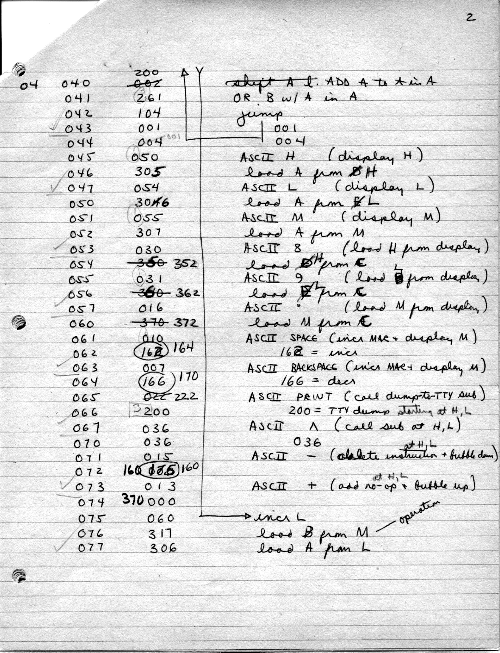 2
200
04 040 002 shift A l. ADD A to A in A
041 261 OR B w/ A in A
042 104 jump
043 001 001
044 004 001 004
045 050 ASCII H (display H)
046 305 load A from H
047 054 ASCII L (display L)
050 306 load A from L
051 055 ASCII M (display M)
052 307 load A from M
053 030 ASCII 8 (load H from display)
054 350 352 load H from C
055 031 ASCII 9 (load L from display)
056 360 362 load L from C
057 016 ASCII . (load M from display)
060 370 372 load M from C
061 010 ASCII SPACE (incr MAR + display M)
062 162 164 162 = incr
063 007 ASCII BACKSPACE (incr MAR + display M)
064 166 170 166 = decr
065 022 222 ASCII PRINT (call dump-to-TTY sub)
066 200 200 = TTY dump starting at H, L
067 036 ASCII Λ (call sub at H, L)
070 036 036
071 015 ASCII - (delete instruction at H, L + bubble down)
072 160 160
073 013 ASCII + (add no-op at H, L + bubble up)
074 370 000
075 060 incr L
076 317 load B from M operation
077 306 load A from L